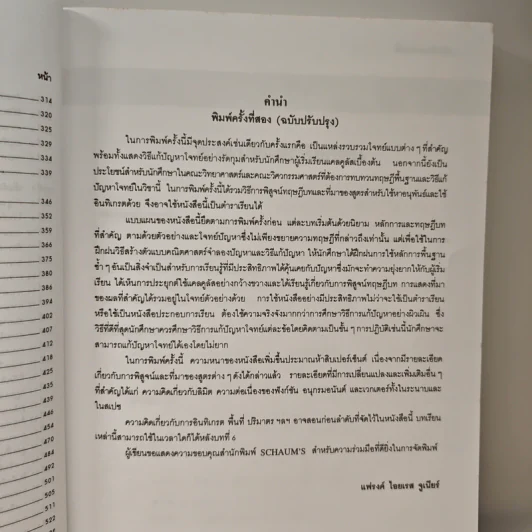 หน้า
314
320
325
329
334
339
346
352
360
367
375
380
386
394
402
407
412
430
436
446
454
470
484
492
501
505
511
522
คำนำ
พิมพ์ครั้งที่สอง (ฉบับปรับปรุง)
ในการพิมพ์ครั้งนี้มีจุดประสงค์เช่นเดียวกับครั้งแรกคือ เป็นแหล่งรวบรวมโจทย์แบบต่าง ๆ ที่สำคัญ
พร้อมทั้งแสดงวิธีแก้ปัญหาโจทย์อย่างรัดกุมสำหรับนักศึกษาผู้เริ่มเรียนแคลคูลัสเบื้องต้น นอกจากนี้ยังเป็น
ประโยชน์สำหรับนักศึกษาในคณะวิทยาศาสตร์และคณะวิศวกรรมศาสตร์ที่ต้องการทบทวนทฤษฎีพื้นฐานและวิธีแก้
ปัญหาโจทย์ในวิชานี้ ในการพิมพ์ครั้งนี้ได้รวมวิธีการพิสูจน์ทฤษฎีบทและที่มาของสูตรสำหรับใช้หาอนุพันธ์และใช้
อินทิเกรตด้วย จึงอาจใช้หนังสือนี้เป็นตำราเรียนได้
แบบแผนของหนังสือนี้ยึดตามการพิมพ์ครั้งก่อน แต่ละบทเริ่มต้นด้วยนิยาม หลักการและทฤษฎีบท
ที่สำคัญ ตามด้วยตัวอย่างและโจทย์ปัญหาซึ่งไม่เพียงขยายความทฤษฎีที่กล่าวถึงเท่านั้น แต่เพื่อใช้ในการ
ฝึกฝนวิธีสร้างตัวแบบคณิตศาสตร์จำลองปัญหาและวิธีแก้ปัญหา ให้นักศึกษาได้ฝึกฝนการใช้หลักการพื้นฐาน
ซ้ำ ๆ อันเป็นสิ่งจำเป็นสำหรับการเรียนรู้ที่มีประสิทธิภาพได้คุ้นเคยกับปัญหาซึ่งมักจะทำความยุ่งยากให้กับผู้เริ่ม
เรียน ได้เห็นการประยุกต์ใช้แคลคูลัสอย่างกว้างขวางและได้เรียนรู้เกี่ยวกับการพิสูจน์ทฤษฎีบท การแสดงที่มา
ของผลที่สำคัญได้รวมอยู่ในโจทย์ตัวอย่างด้วย การใช้หนังสืออย่างมีประสิทธิภาพไม่ว่าจะใช้เป็นตำราเรียน
หรือใช้เป็นหนังสือประกอบการเรียน ต้องใช้ความจริงจังมากกว่าการศึกษาวิธีการแก้ปัญหาอย่างผิวเผิน ซึ่ง
วิธีที่ดีที่สุดนักศึกษาควรศึกษาวิธีการแก้ปัญหาโจทย์แต่ละข้อโดยคิดตามเป็นขั้น ๆ การปฏิบัติเช่นนี้นักศึกษาจะ
สามารถแก้ปัญหาได้เองโดยไม่ยาก
ในการพิมพ์ครั้งนี้ ความหนาของหนังสือเพิ่มขึ้นประมาณห้าสิบเปอร์เซ็นต์ เนื่องจากมีรายละเอียด
เกี่ยวกับการพิสูจน์และที่มาของสูตรต่าง ๆ ดังได้กล่าวแล้ว รายละเอียดที่มีการเปลี่ยนแปลงและเพิ่มเติมอื่น ๆ
ที่สำคัญได้แก่ ความคิดเกี่ยวกับลิมิต ความต่อเนื่องของฟังก์ชัน อนุกรมอนันต์ และเวกเตอร์ทั้งในระนาบและ
ในสเปซ
ความคิดเกี่ยวกับการอินทิเกรต พื้นที่ ปริมาตร ฯลฯ อาจสอนก่อนลำดับที่จัดไว้ในหนังสือนี้ บทเรียน
เหล่านี้สามารถใช้ในเวลาใดก็ได้หลังบทที่ 6
ผู้เขียนขอแสดงความขอบคุณสำนักพิมพ์ SCHAUM'S สำหรับความร่วมมือที่ดียิ่งในการจัดพิมพ์
แฟรงค์ ไอยเรส จูเนียร์